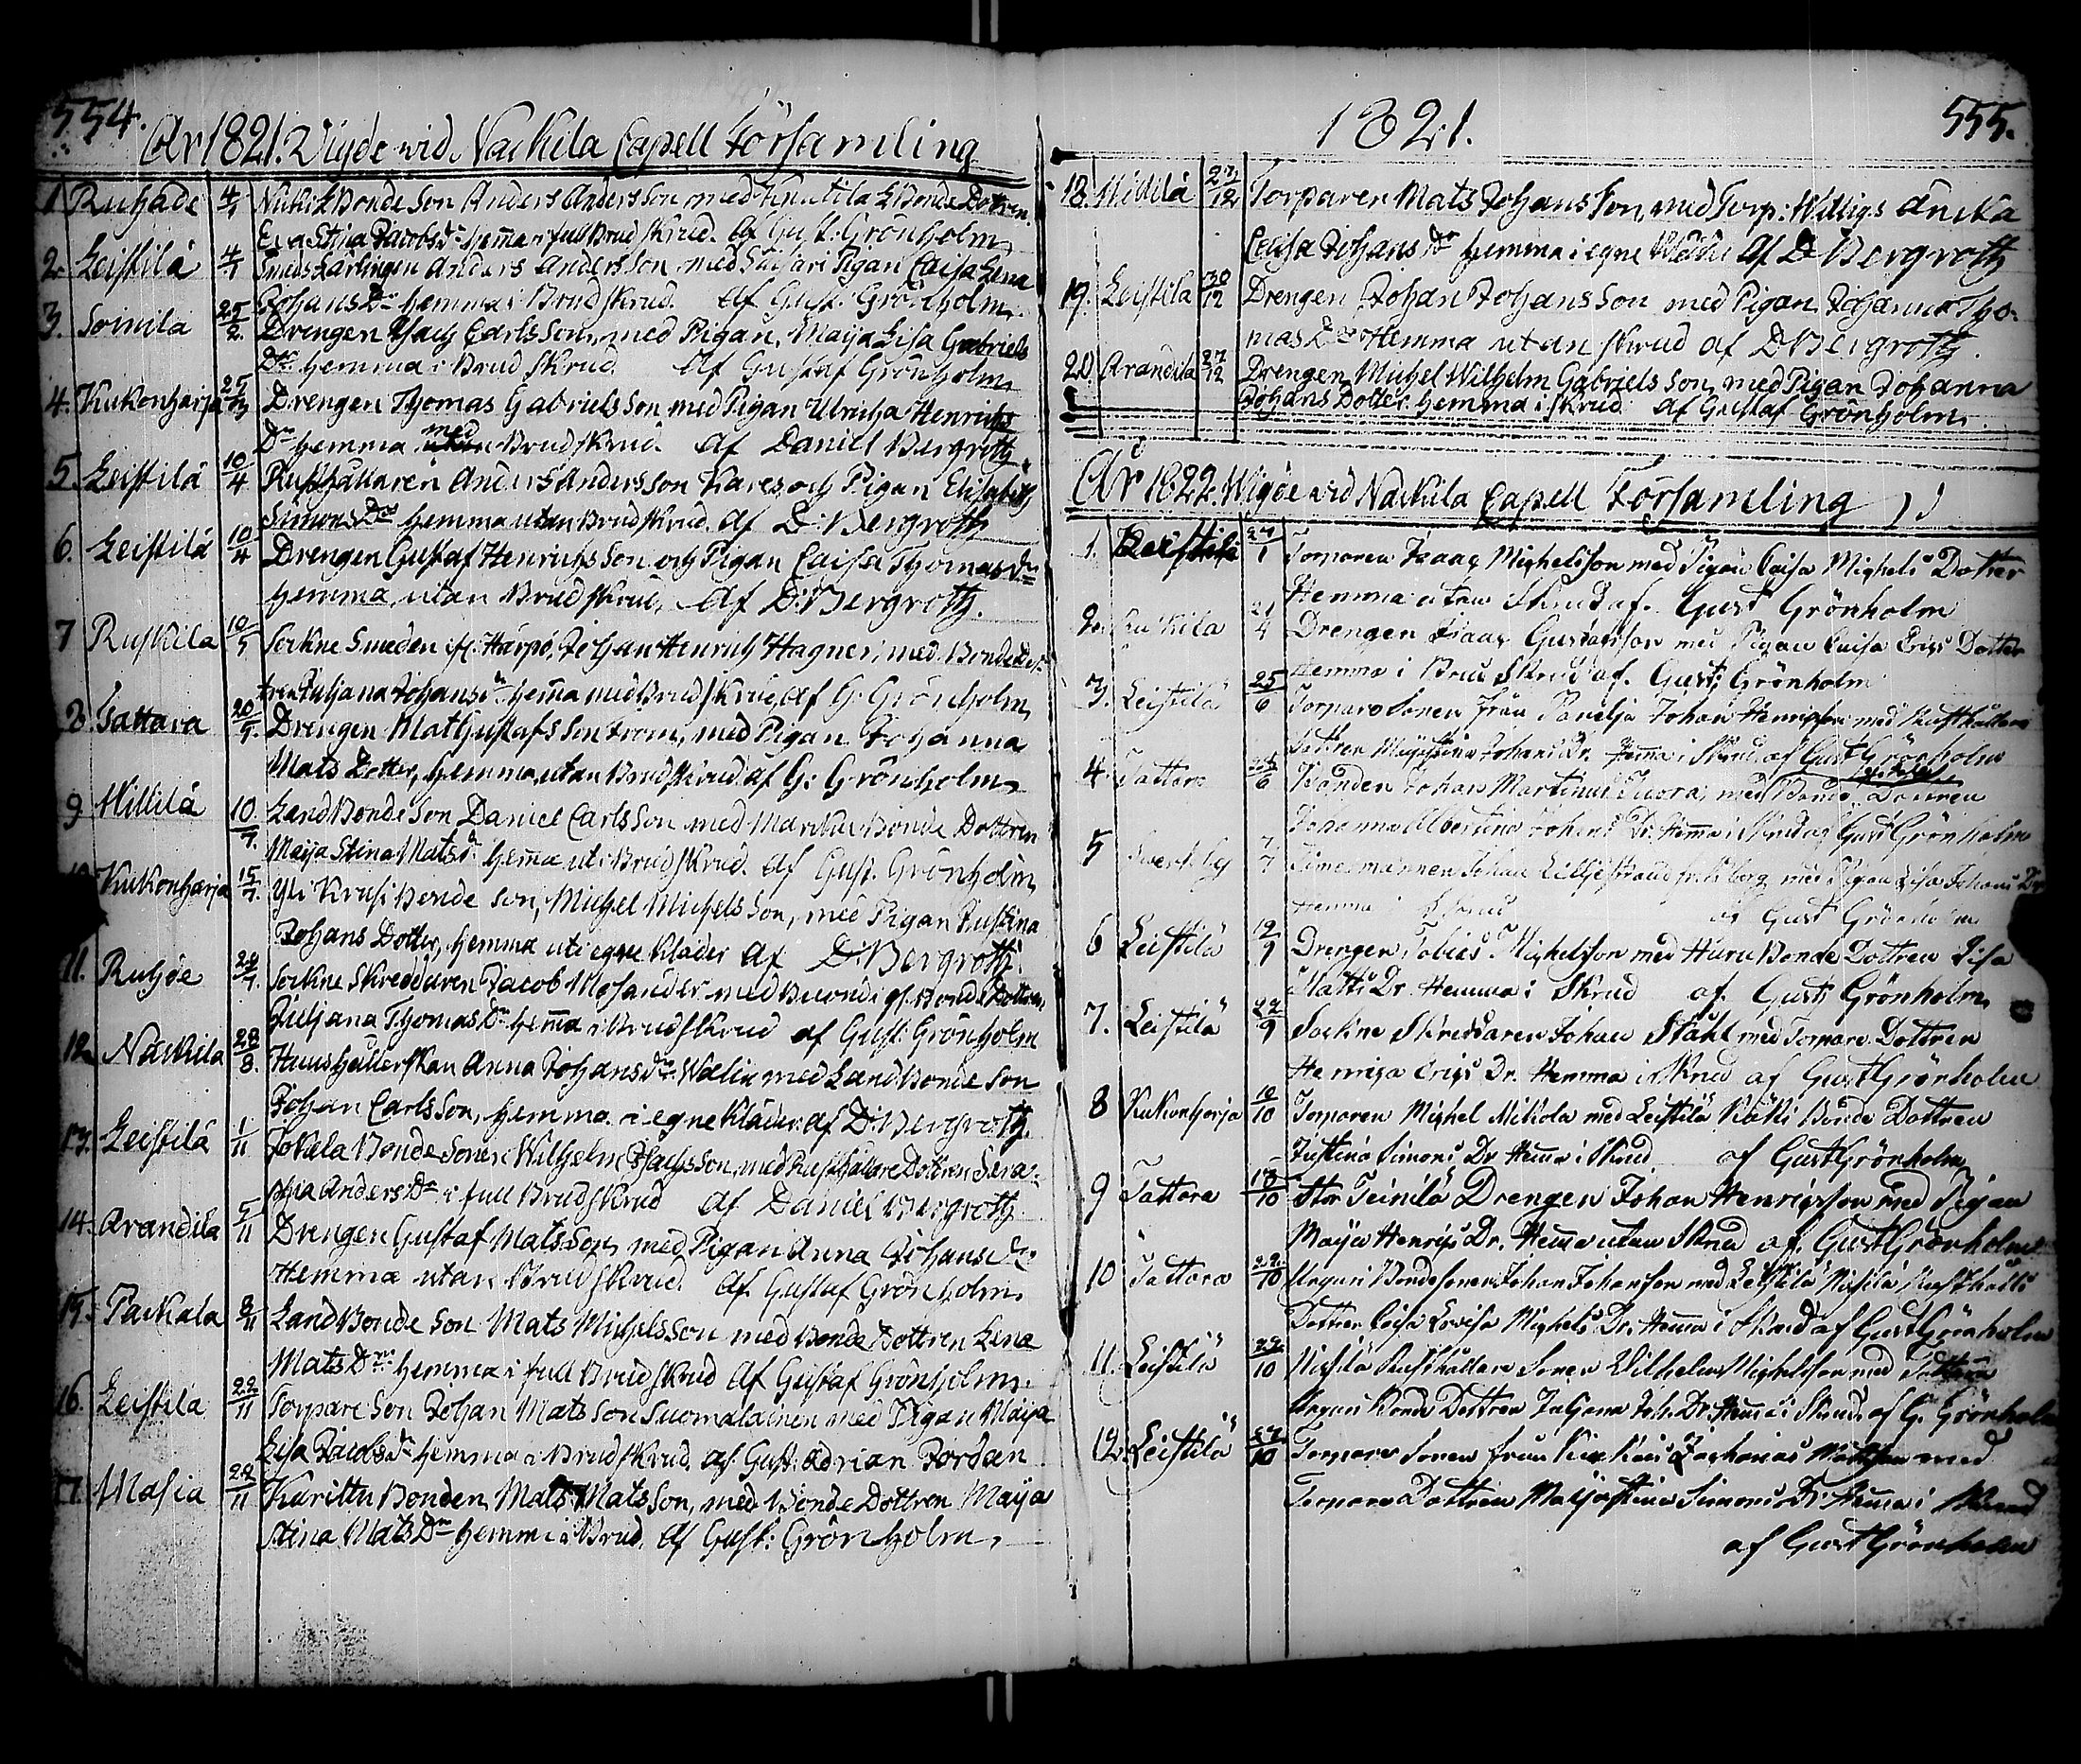 554.
År 1821. Vigde wid Nackila Capell Församling
1 Ruhade 4/1 Bonde Son Anders Anders Son med Knutila Bonde Dottren
Eva Stina Jacobs Dr hemma i full Brud skrud. Af Gust: Grönholm
2. Leistilä 4/1 Smeds Lärlingen Anders Anders Son med Pigan Caisa Lena
Johans Dr hemma i Brud skrud. Af Gust: Grönholm
3. Soinila 25/2. Drengen Isach Carls Son, med Pigan, Maija Lisa Gabriels
Dr hemma i Brud Skrud. Af Gustaf Grönholm
4. Kukonharja 25/3 Drengen Thomas Gabriels Son med Pigan Ulricha Henrichs
Dr hemma med Brud skrud af Daniel Bergroth
5. Leistilä 10/4 Rusthållaren Anders Anders Son Kares och Pigan Elisabeth
Simons Dr hemma utan Brud skrud. af D: Bergroth
6. Leistilä 10/4 Drengen Gustaf Henrichs Son och Pigan Caisa Thomas Dr
hemma, utan Brud skrud, af D: Bergroth.
7 Ruskila 10/5 Sockne Smeden Johan Henrich Hagner, med Bonde Dot-
tren Juliana Johans Dr hemma med Brud skrud, af G: Grönholm
8 Tattara 20/5. Drengen Mat Gustafs Son from, med Pigan Johanna
Mats Dotter, hemma utan Brud skrud af G: Grönholm
9 Willilä 10/7. Land Bonde Son Daniel Carls Son med Bonde Dottren
Maija Stina Mats Dr hemma uti Brud skrud. af Gust. Grönholm
Kukonharja 15/7. Yli Krusi Bonde Son, Michel Michels Son, med Pigan Justina
Johans Dotter, hemma uti egne kläder af D: Bergroth.
11. Ruhde 24/7. Sockne Skreddaren Jacob Mosander med Bonde Dottren,
Juliana Thomas Dr hemma i Brud skrud af Gust: Grönholm
12. Nackila 28/8. Huushållerskan Anna Johans Dr Walin med Land Bonde Son
Johan Carls Son, hemma i egne Kläder af D: Bergroth.
13. Leistilä 1/11 Jokela Bonde Sonen Wilhelm Isachs Son, med Rusthållare Dottren Sera-
phia Anders Dr i full Brud Skrud Af Daniel Bergroth
14. Arandila 5/11 Drengen Gustaf Mats Son med Pigan Anna Johans Dr
Hemma utan Brud Skrud. af Gustaf Grönholm.
15. Packala 8/11 Land Bonde Son Mats Michels Son med Bonde Dottren Lena
Mats Dr hemma i full Brud skrud Af Gustaf Grönholm.
16. Leistilä 22/11 Torpare Son Johan Mats Son Suomalainen med Pigan Maija
Lisa Jacobs Dr hemma i Brud skrud. af Gust: Adrian Jordan
17. Masia 22/11 Karittu Bonden, Mats Mats Son, med Bonde Dottren Maija
Stina Mats Dr hemma i Brud. af Gust: Grönholm,
1821.
555.
18. Willilä 27/12 Torparen Mats Johans Son, med Torp: Willigs Ancka
Caisa Johans Dr hemma i egne Kläder Af D Bergroth
19. Leistila 30/12 Drengen Johan Johans Son med Pigan Johanna Tho-
mas Dr Hemma utan skrud af D Bergroth.
20. Arandila 27/12 Drengen Michel Wilhelm Gabriels Son, med Pigan Johanna
Johans Dotter hemma i skrud af Gustaf Grönholm.
År 1822. Wigde wid Nackila Capell Församling
1. Leistilä 27/1 Torparen Isaac Michelsson med Pigan Caisa Michels Dotter
Hemma utan Skrud af. Gust Grönholm
2. 21/4 Drengen Isaac Gustafsson med Pigan Caisa Erics Dotter
Hemma i Brud Skrud af. Gust: Grönholm
3. Leistilä 25/6 Torpare Sonen från Johan Henricsson med Rusthållare
Dottren Maja Stina Johans Dr. Hemma i Skrud af Gust Grönholm
4. Tattara 24/6 Bonden Johan Martinus Tuora, med Bonde Dottren
Johanna Albertina Johans Dr. Hemma i Skrud af Gust Grönholm
5 7/7 Timmermannen Johan Lilljestrand med Pigan Lisa Johans Dr
Hemma i Skrud af Gust Grönholm
6 Leistilä 12/9 Drengen Tobias Michelsson med Bonde Dottren Lisa
Matts Dr. Hemma i Skrud af. Gust Grönholm
7. Leistilä 22/9 Sockne Skreddaren Johan Ståhl med Torpare Dottren
Henrica Erics Dr. Hemma i Skrud af Gust Grönholm
8 Kukonharja 10/10 Torparen Michel Nikola med Leistilä Käki Bonde Dottren
Justina Simons Dr Hemma i Skrud af Gust Grönholm
9 Tattara 13/10 Stor Teinilä Drengen Johan Henricsson med Pigan
Maija Henrics Dr. Hemma utan Skrud af. Gust Grönholm
10 Tattara 29/10 Bondesonen Johan Johansson med Leistilä Rusthålls
Dottren Caisa Lovisa Michels Dr. Hemma i Skrud af Gust Grönholm
11. Leistilä 29/10 Rusthållare Sonen Wilhelm Michelsson med Tattara
Bonde Dottren Juliana Joh. Dr. Hemma i Skrud af G. Grönholm
12. Leistilä 27/10 Torpare Sonen från Zacharias Mattsson med
Torpare Dottren Maija Stina Simons Dr Hemma i Skrud
af Gust Grönholm